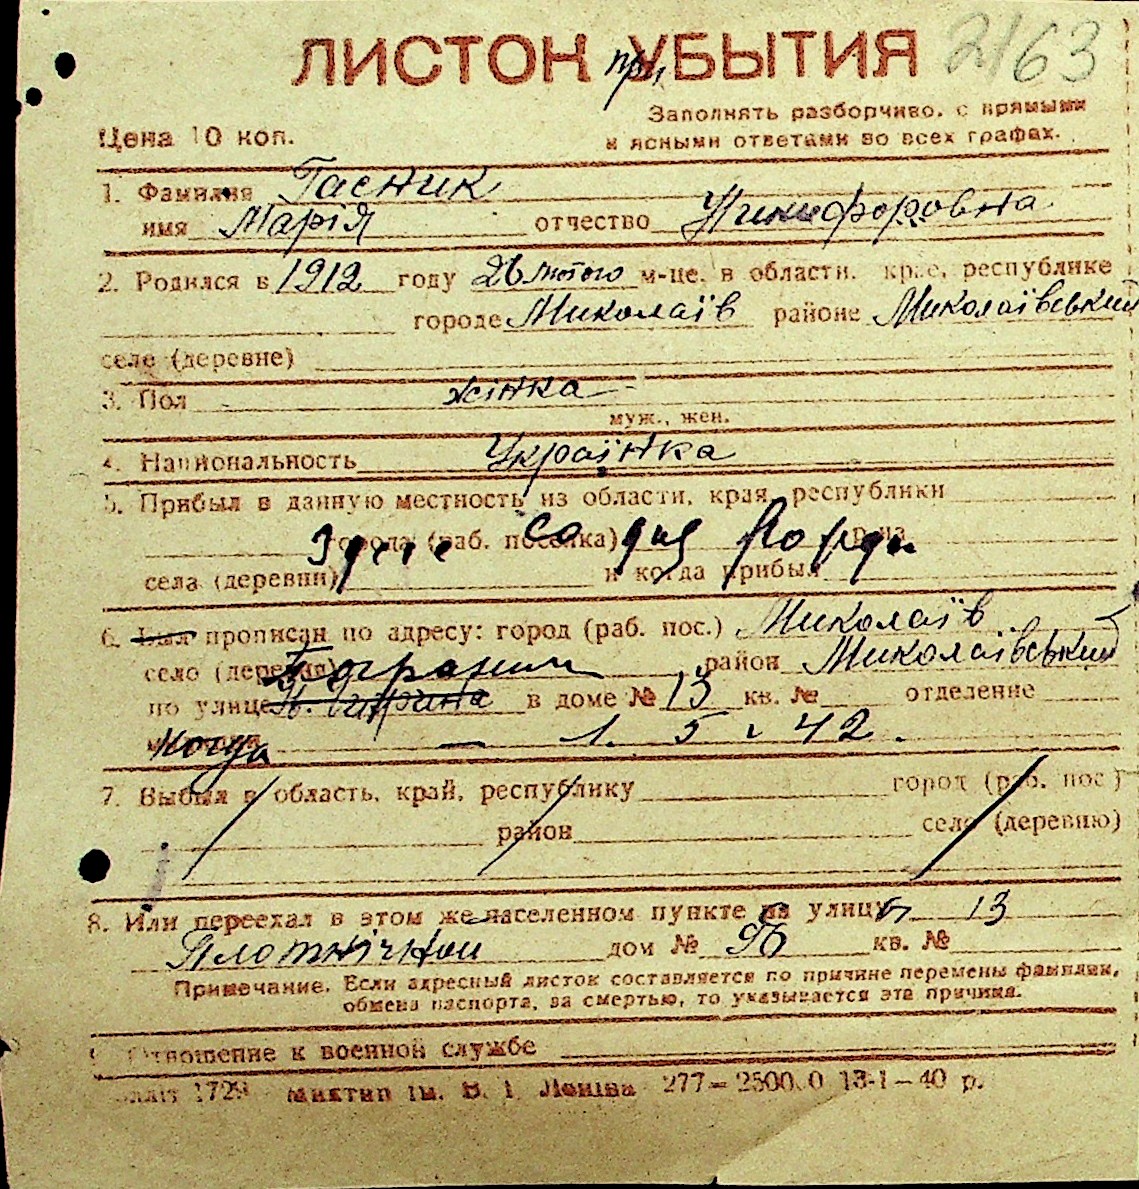 ЛИСТОК УБЫТИЯ при 2163
Заполнять разборчиво, с прямыми
Цена 10 коп. и ясными ответами во всех графах.
1. Фамилия Гасник
имя Марія отчество Никифоровна
2. Родился в 1912 году 26 лютого м-це, в области, крае, республике
городе Миколаїв районе Миколаївський
селе (деревне)
3. Пол жінка
муж., жен.
4. Национальность Українка
5. Прибыл в данную местность из области, края, республики
города (раб. поселка) р-на
Здесь со дня
села (деревни) и когда прибыл
6. Был прописан по адресу: город (раб. пос.) Миколаїв
село (деревня) район Миколаївський
по улице в доме № 13 кв. № отделение
Когда — 1. 5 42.
7. Выбыл в область, край, республику город (раб. пос.)
район село (деревню)
8. Или переехал в этом же населенном пункте на улицу 13
Плотнічной дом № кв. №
Примечание. Если адресный листок составляется по причине перемены фамилии,
обмена паспорта, за смертью, то указывается эта причина.
Отношение к военной службе
1729 ім. В. І. Леніна 277—25000 13-1—40 р.